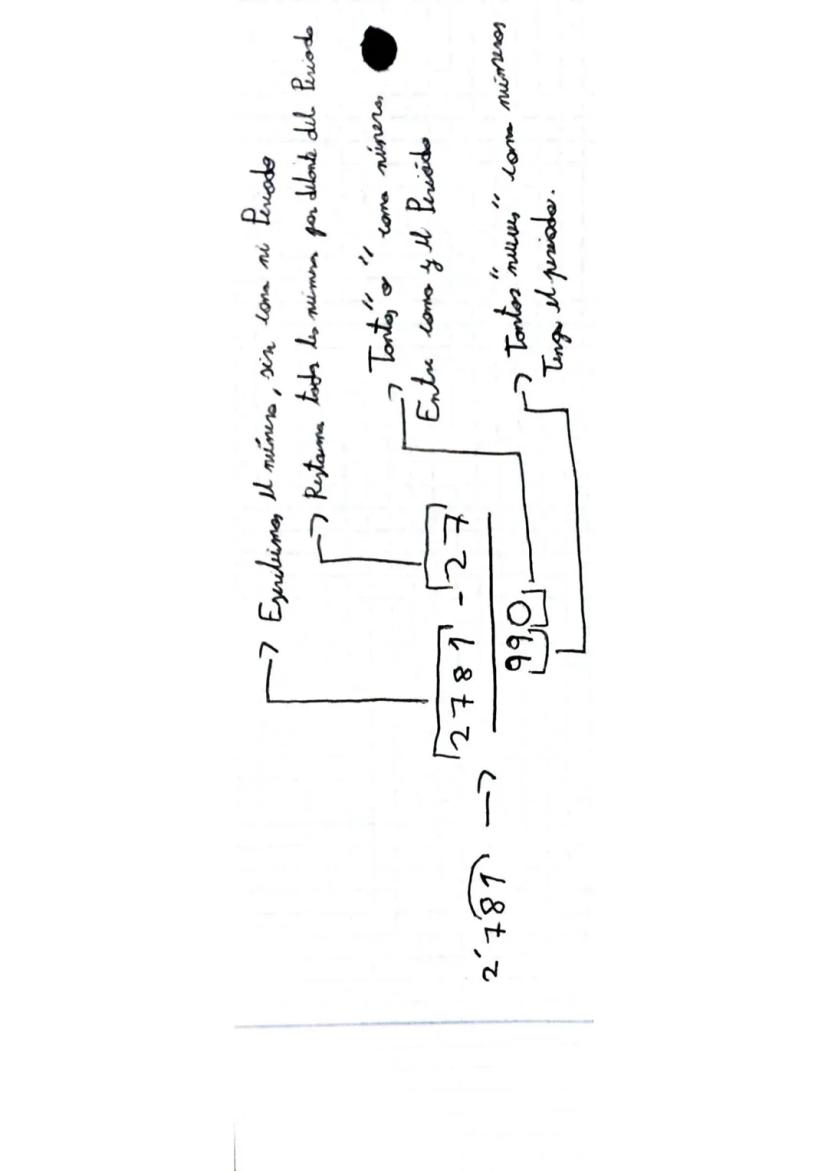 Escribimos el número, sin coma ni Periodo
Restamos todos los números por delante del Periodo
Tantos "0" como números
Entre coma y el Periodo
2'781 → 2781 - 27
990
Tantos "nueves" como números
Tenga el periodo.